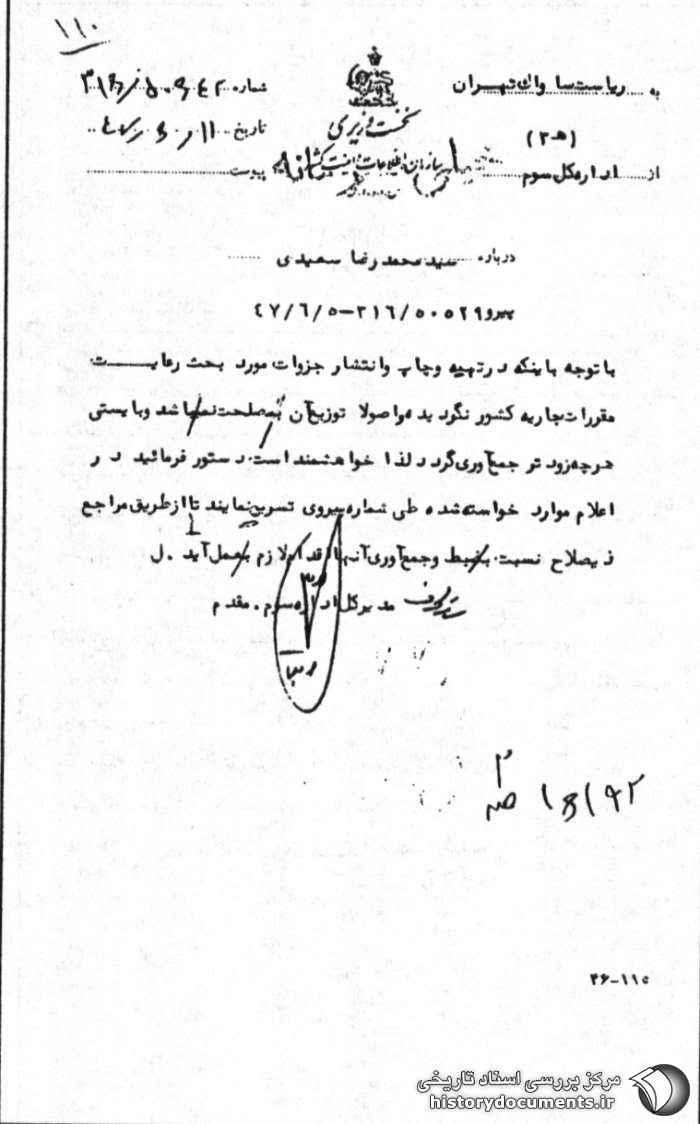 ۱۱۰
به ریاست ساواک تهران
(ﻫ ۳)
از اداره کل سوم
نخست وزیری
سازمان اطلاعات و امنیت کشور
شماره
تاریخ
پیوست
درباره سید محمد رضا سعیدی
پیرو ۳۱۶/۵۰۵۲۹-۴۷/۶/۵
با توجه باینکه در تهیه و چاپ و انتشار جزوات مورد بحث رعایت
مقررات جاریه کشور نگردیده و اصولا توزیع آن بمصلحت نمیباشد و بایستی
هرچه زودتر جمع آوری گردد لذا خواهشمند است دستور فرمائید در
اعلام موارد خواسته شده طی شماره پیروی تسریع نمایند تا از طریق مراجع
ذیصلاح نسبت بضبط و جمع آوری آنها اقدام لازم بعمل آید . ل
مدیر کل اداره سوم . مقدم
۴۶-۱۱۵
مرکز بررسی اسناد تاریخی
historydocuments.ir